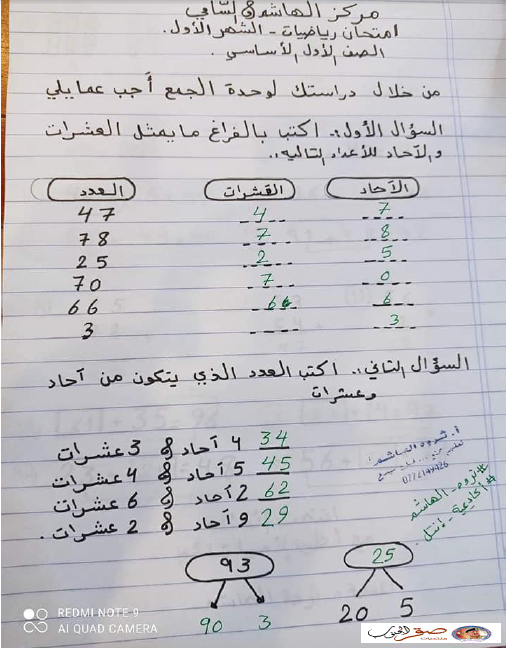 مركز الهاشم الشامي
امتحان رياضيات - الشهر الأول.
الصف الأول الأساسي.
من خلال دراستك لوحدة الجمع أجب عما يلي
السؤال الأول:. اكتب بالفراغ ما يمثل العشرات
والآحاد للأعداد التالية:.
الآحاد العشرات العدد
7 4 47
8 7 78
5 2 25
0 7 70
6 6 66
3 3
السؤال الثاني:. اكتب العدد الذي يتكون من آحاد
وعشرات
34 4 آحاد و 3 عشرات
45 5 آحاد و 4 عشرات
62 2 آحاد و 6 عشرات
29 9 آحاد و 2 عشرات.
93 25
90 3 20 5
أ. ثروه الهاشم
#ثروه-الهاشم
#أكاديمية-إنتل
REDMI NOTE 9
AI QUAD CAMERA
صقر الجنوب
منتديات